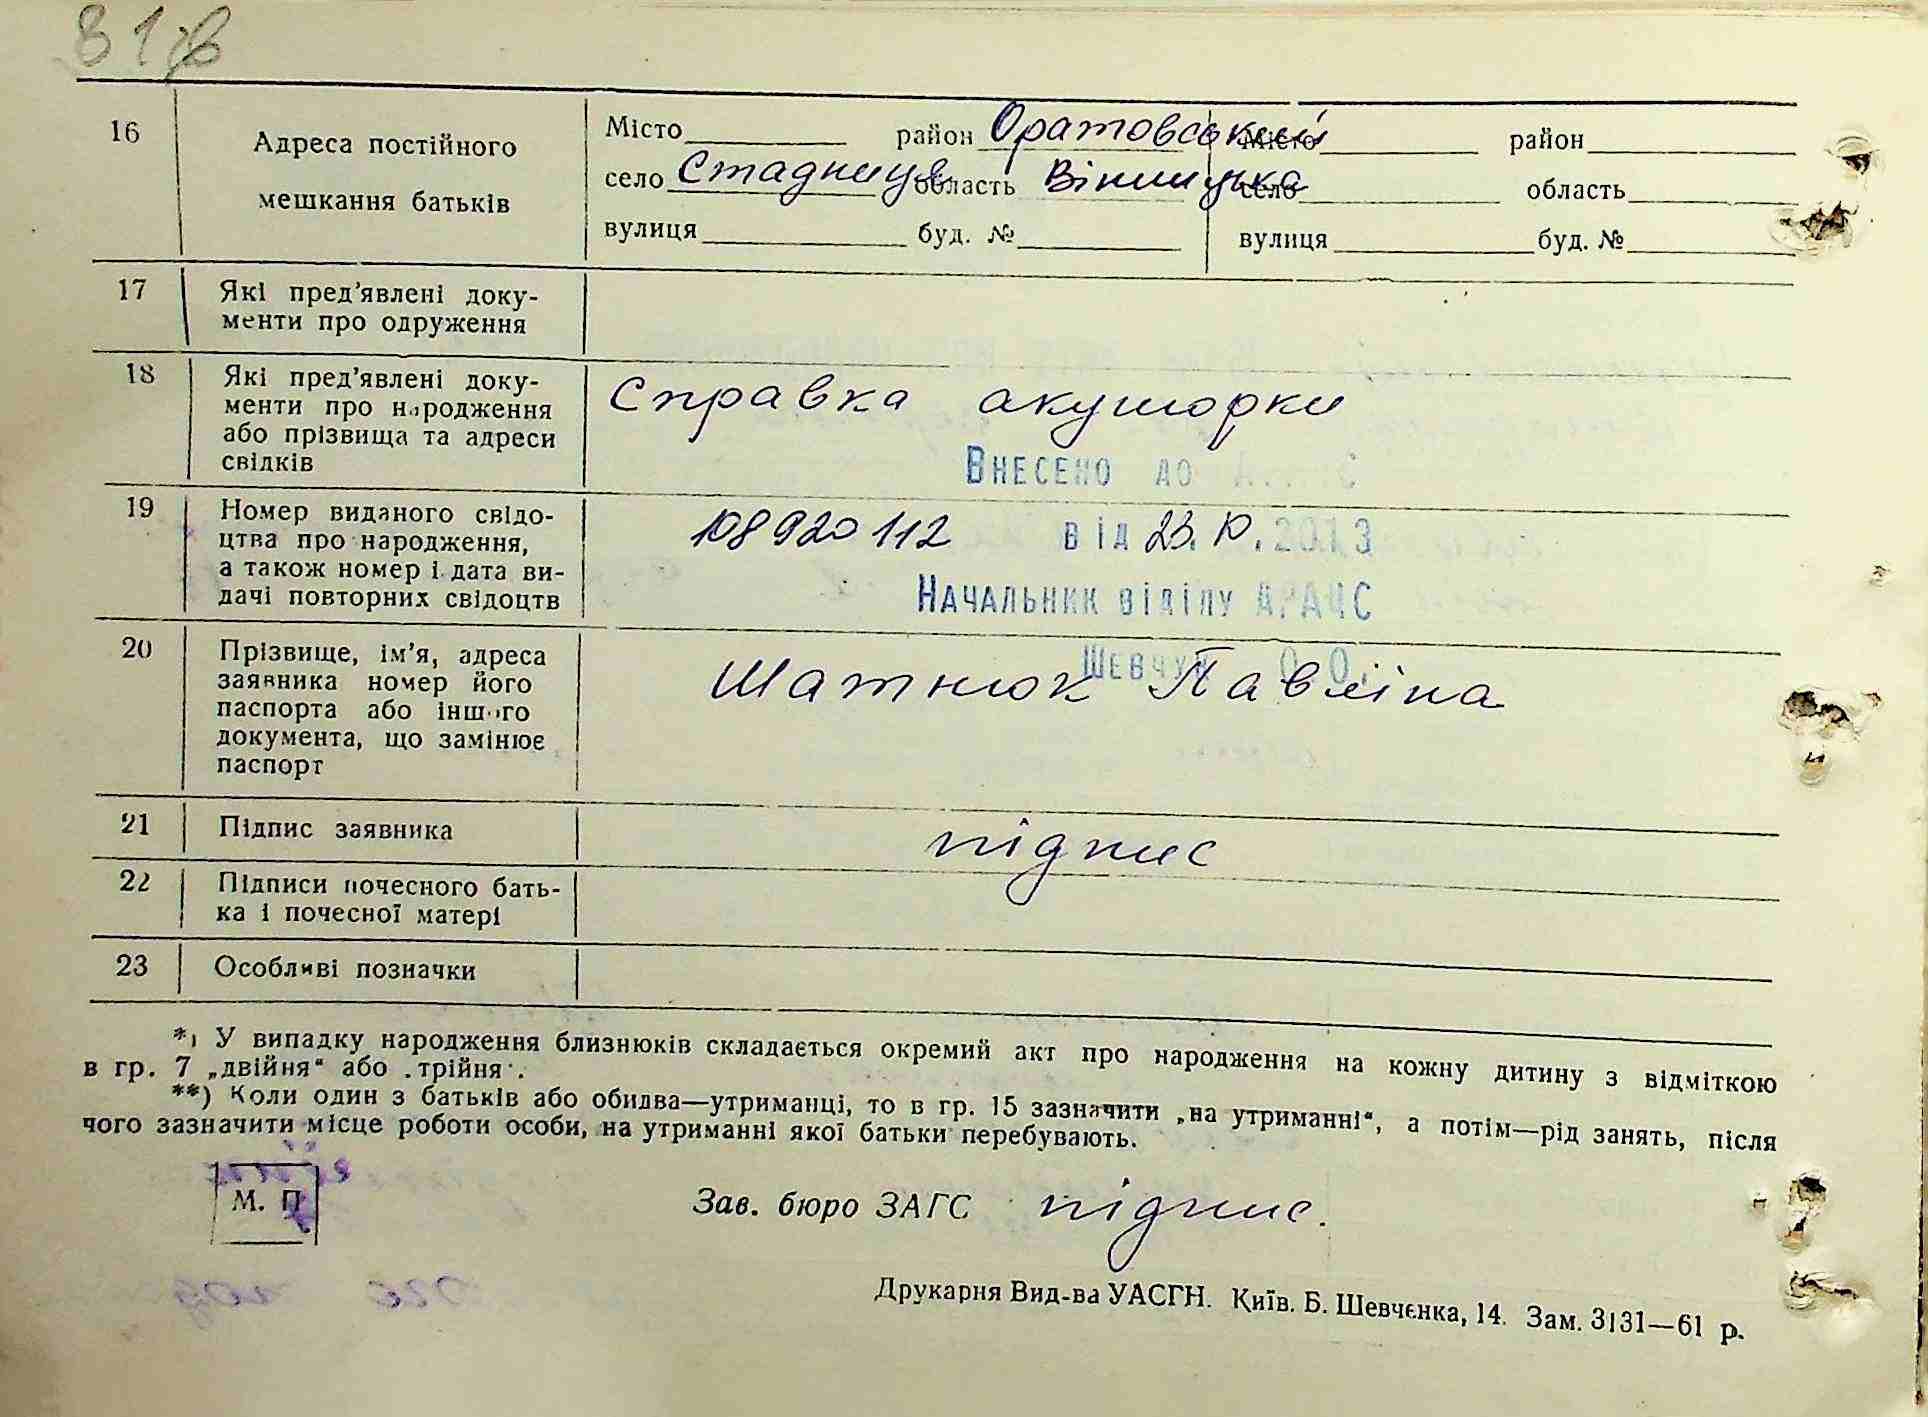 81 зв
16
Адреса постійного
мешкання батьків
Місто район Оратовський
село Стадниця область Вінницька
вулиця буд. №
Місто район
село область
вулиця буд. №
17
Які пред’явлені доку-
менти про одруження
18
Які пред’явлені доку-
менти про народження
або прізвища та адреси
свідків
Справка акушорки
Внесено до А...С
19
Номер виданого свідо-
цтва про народження,
а також номер і дата ви-
дачі повторних свідоцтв
108920112 від 23.10.2013
Начальник відділу ДРАЦС
Шевчук О.О.
20
Прізвище, ім’я, адреса
заявника номер його
паспорта або іншого
документа, що замінює
паспорт
Шатнюк Павліна
21
Підпис заявника
підпис
22
Підписи почесного бать-
ка і почесної матері
23
Особливі позначки
*) У випадку народження близнюків складається окремий акт про народження на кожну дитину з відміткою
в гр. 7 „двійня“ або „трійня“.
**) Коли один з батьків або обидва—утриманці, то в гр. 15 зазначити „на утриманні“, а потім—рід занять, після
чого зазначити місце роботи особи, на утриманні якої батьки перебувають.
М. П
Зав. бюро ЗАГС підпис.
Друкарня Вид-ва УАСГН. Київ. Б. Шевченка, 14. Зам. 3131—61 р.